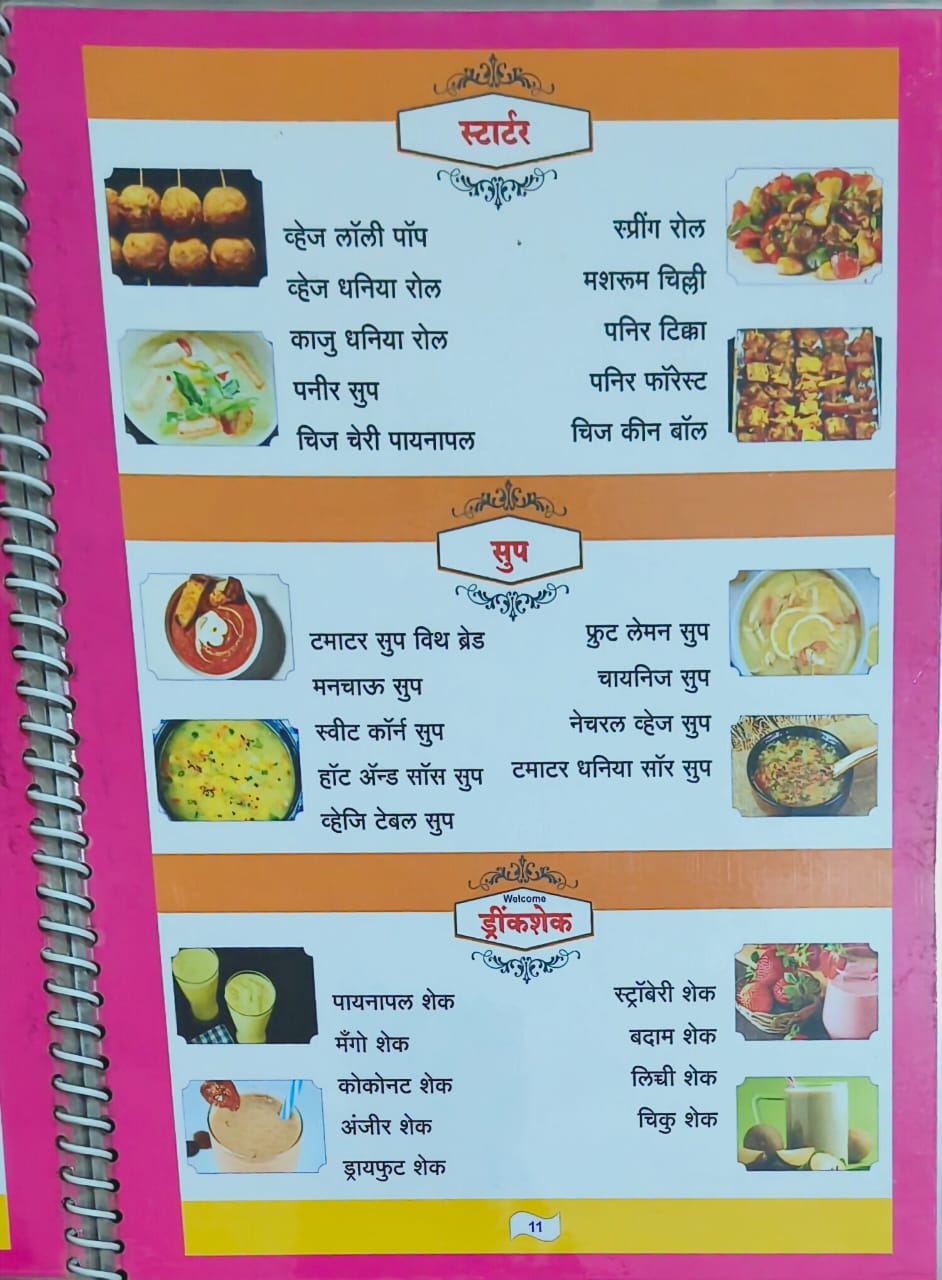 स्टार्टर
व्हेज लॉली पॉप
व्हेज धनिया रोल
काजु धनिया रोल
पनीर सुप
चिज चेरी पायनापल
स्प्रींग रोल
मशरूम चिल्ली
पनिर टिक्का
पनिर फॉरेस्ट
चिज कीन बॉल
सुप
टमाटर सुप विथ ब्रेड
मनचाऊ सुप
स्वीट कॉर्न सुप
हॉट ॲन्ड सॉस सुप
व्हेजि टेबल सुप
फ्रुट लेमन सुप
चायनिज सुप
नेचरल व्हेज सुप
टमाटर धनिया सॉर सुप
Welcome
ड्रींकशेक
पायनापल शेक
मँगो शेक
कोकोनट शेक
अंजीर शेक
ड्रायफुट शेक
स्ट्रॉबेरी शेक
बदाम शेक
लिच्ची शेक
चिकु शेक
11